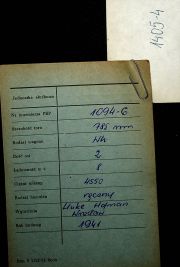 1405-4
Jednostka służbowa
Nr inwentarza PKP 1094-6
Szerokość toru 785 mm
Rodzaj wagonu Wh
Ilość osi 2
Ładowność w t 8
Ciężar własny 4550
Rodzaj hamulca ręczny
Wytwórnia Linke Hofman
Wrocław
Rok budowy 1941